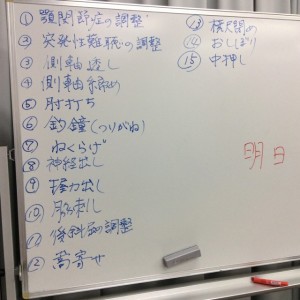 ① 顎関節症の調整
② 突発性難聴の調整
③ 側軸透し
④ 側軸緩め
⑤ 肘打ち
⑥ 釣鐘(つりがね)
⑦ ねくらげ
⑧ 神経出し
⑨ 握力出し
⑩ 刺し
⑪ の調整
⑫ 寄せ
⑬
⑭ おしぼり
⑮ 中押し
明日